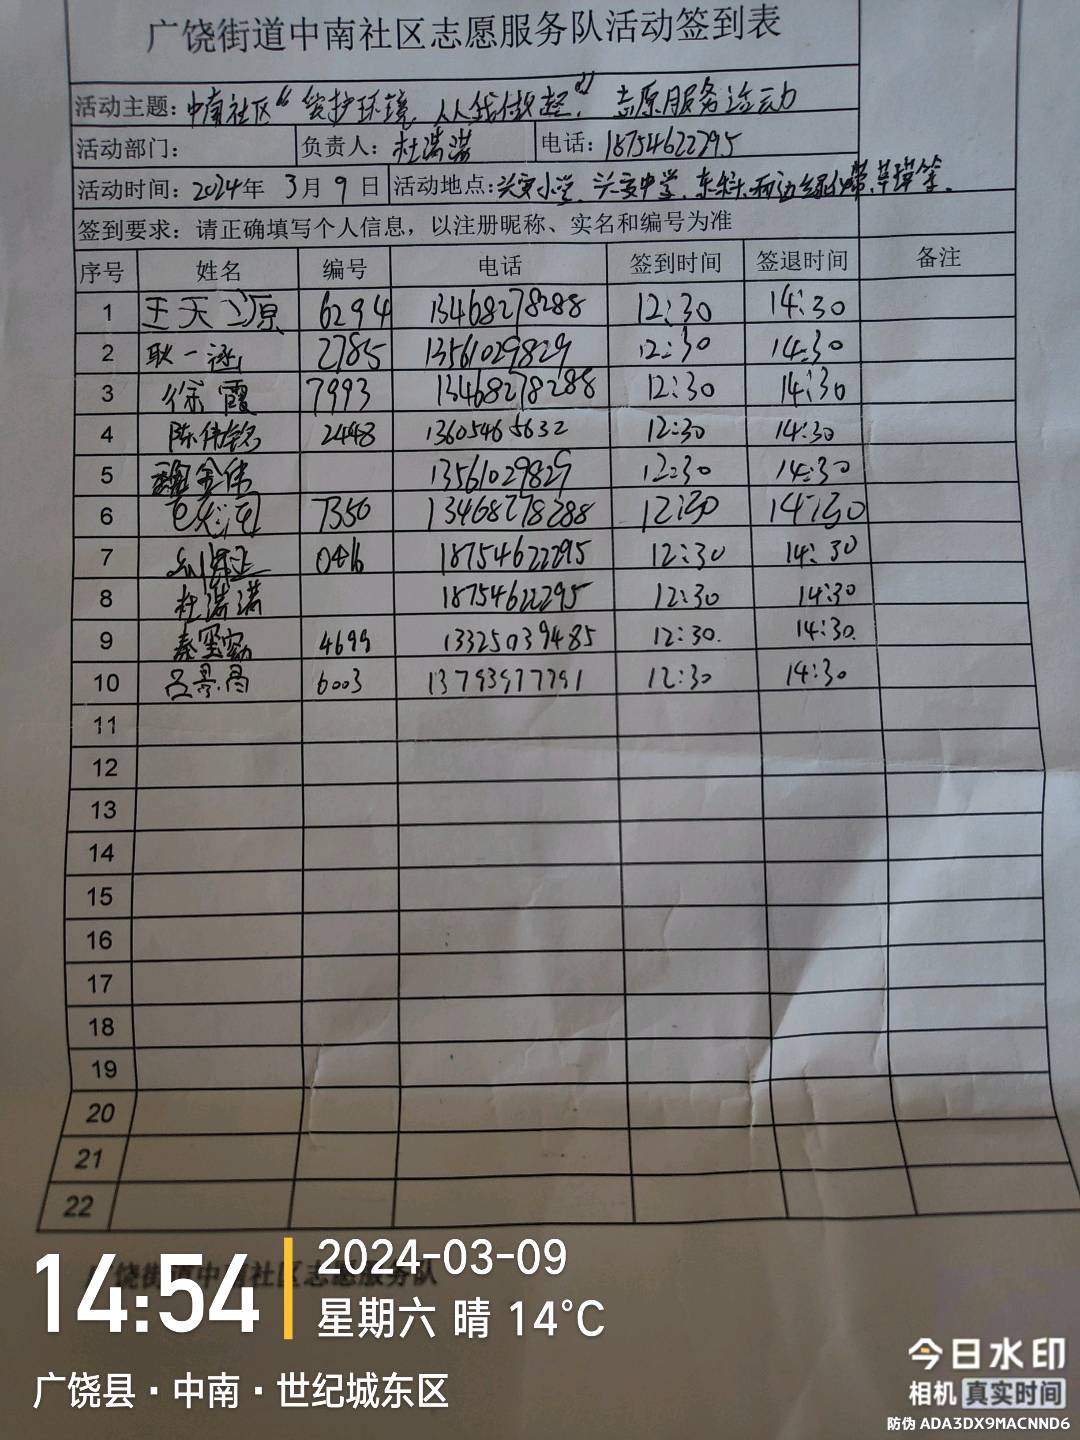 广饶街道中南社区志愿服务队活动签到表
活动主题：中南社区“爱护环境，人人我做起”，志愿服务活动
活动部门： 负责人：杜满满 电话：18754622295
活动时间：2024年 3月9日 活动地点：兴安小学、兴安中学、东 两边绿化带
签到要求：请正确填写个人信息，以注册昵称、实名和编号为准
序号 姓名 编号 电话 签到时间 签退时间 备注
1 王天源 6294 13468278288 12:30 14:30
2 耿一涵 2785 13561029829 12:30 14:30
3 徐霞 7993 13468278288 12:30 14:30
4 陈伟铭 2448 13605465632 12:30 14:30
5 13561029829 12:30 14:30
6 7350 13468278288 12:30 14:30
7 0416 18754622295 12:30 14:30
8 杜满满 18754622295 12:30 14:30
9 4699 13325039485 12:30 14:30
10 6003 13793977791 12:30 14:30
11
12
13
14
15
16
17
18
19
20
21
22
广饶街道中南社区志愿服务队
14:54
2024-03-09
星期六 晴 14°C
广饶县·中南·世纪城东区
今日水印
相机 真实时间
防伪 ADA3DX9MACNND6